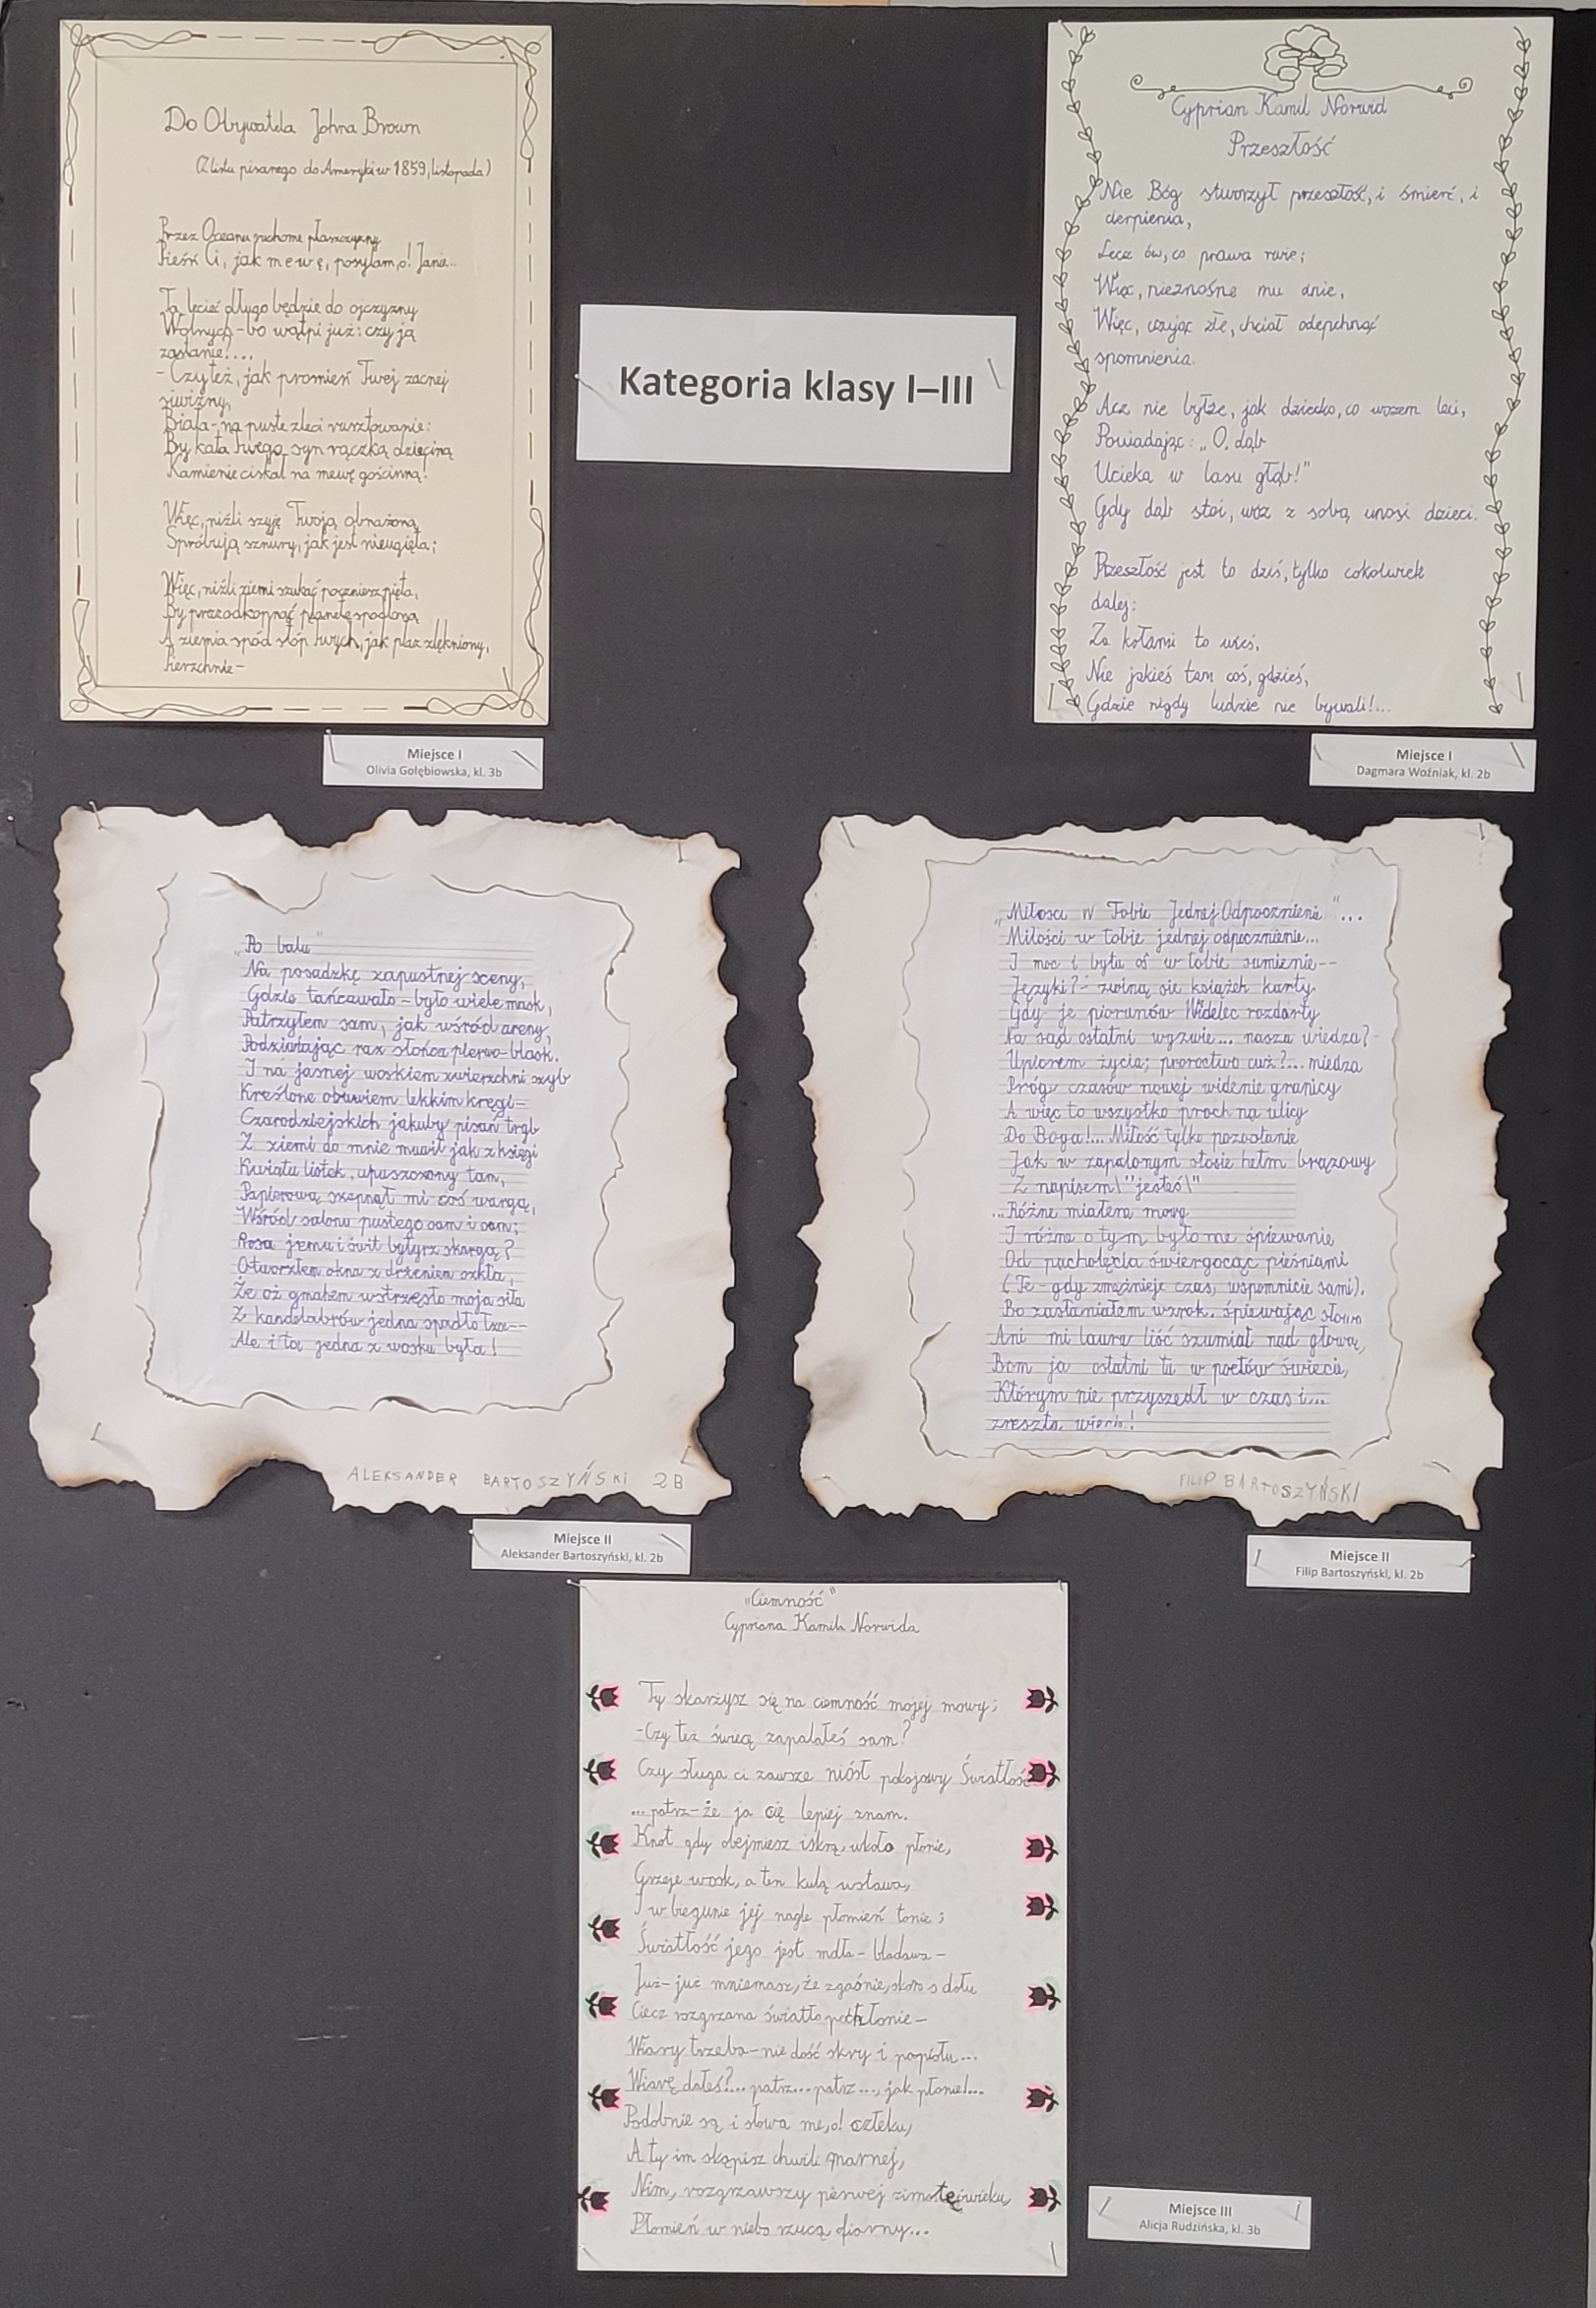 Do Obywatela Johna Brown
(Z listu pisanego do Ameryki w 1859, listopada)
Przez Oceanu ruchome płaszczyzny
Pieśń Ci, jak mewę, posyłam, o! Janie...
Ta lecieć długo będzie do ojczyzny
Wolnych - bo wątpi już: czy ją
zastanie?....
- Czy też, jak promień Twej zacnej
siwizny,
Biała - na puste zleci rusztowanie:
By kata Twego syn rączką dziecinną
Kamienie ciskał na mewę gościnną!
Więc, niźli szyję Twoją obnażoną
Spróbują sznury, jak jest nieugięta;
Więc, niźli ziemi szukać poczniesz piętą,
By precz odkopnąć planetę spodloną
A ziemia spód stóp Twych, jak płaz zlękniony,
Pierzchnie -
Miejsce I
Olivia Gołębiowska, kl. 3b
Kategoria klasy I–III
Cyprian Kamil Norwid
Przeszłość
Nie Bóg stworzył przeszłość, i śmierć, i
cierpienia,
Lecz ów, co prawa rwie;
Więc, nieznośne mu dnie,
Więc, czując złe, chciał odepchnąć
spomnienia.
Acz nie byłże, jak dziecko, co wozem leci,
Powiadając: „O, dąb
Ucieka w lasu głąb!"
Gdy dąb stoi, wóz z sobą unosi dzieci.
Przeszłość jest to dziś, tylko cokolwiek
dalej:
Za kołami to wieś,
Nie jakieś tam coś, gdzieś,
Gdzie nigdy ludzie nie bywali!...
Miejsce I
Dagmara Woźniak, kl. 2b
„Po balu"
Na posadzkę zapustnej sceny,
Gdzie tańcawało - było wiele mask,
Patrzyłem sam, jak wśród areny,
Podziwiając raz słońca pierwo-blask.
I na jasnej woskiem zwierzchni szyb
Kreślone obuwiem lekkim kręgi -
Czarodziejskich jakuby pisań tryb
Z ziemi do mnie mówił jak z księgi
Kwiatu listek, upuszczony tam,
Papierową szepnął mi coś wargą,
Wśród salonu pustego sam i sam;
Rosa jemu i świt byłyż skargą?
Otworzyłem okna z drżeniem szkła,
Że aż gmachem wstrzęsła moja siła
Z kandelabrów jedna spadło łza--
Ale i ta jedna z wosku była!
ALEKSANDER BARTOSZYŃSKI 2B
Miejsce II
Aleksander Bartoszyński, kl. 2b
„Miłości W Tobie Jednej Odpocznienie"...
Miłości w tobie jednej odpocznienie...
I moc i była oś w tobie sumienie--
Języki? - zwiną się książek karty
Gdy je piorunów Widelec rozdarty
Na sąd ostatni wyzwie... nasza wiedza? -
Upiorem życia; proroctwo cóż?... miedza
Próg czasów nowej widzenie granicy
A więc to wszystko proch na ulicy
Do Boga!... Miłość tylko pozostanie
Jak w zapalonym stosie hełm brązowy
Z napisem\"jesteś\"
...Różne miałem mowy
I różne o tym było me śpiewanie
Od pacholęcia świergocąc pieśniami
(Te - gdy zmężnieje czas, wspomnicie sami).
Bo zasłaniałem wzrok. śpiewając słowo
Ani mi lauru liść szumiał nad głową,
Bom ja ostatni tu w poetów świecie,
Którym nie przyszedł w czas i...
zresztą, wiecie!
FILIP BARTOSZYŃSKI
Miejsce II
Filip Bartoszyński, kl. 2b
„Ciemność"
Cypriana Kamila Norwida
Ty skarżysz się na ciemność mojej mowy;
- Czy też świecę zapalałeś sam?
Czy sługa ci zawsze niósł pokojowy Światłość
... patrz - że ja cię lepiej znam.
Knot gdy obejmiesz iskrą, wkoło płonie,
Grzeje wosk, a ten kulą wstawa,
I w biegunie jej nagle płomień tonie;
Światłość jego jest mdła - bladawa -
Już - już mniemasz, że zgaśnie, skoro s dołu
Ciecz rozgrzana światło pochłonie -
Wiary trzeba - nie dość skry i popiołu...
Wiarę dałeś?... patrz... patrz..., jak płonie!...
Podobnie są i słowa me, o! człeku,
A ty im skąpisz chwili marnej,
Nim, rozgrzawszy pierwej zimotę wieku,
Płomień w niebo rzucą ofiarny...
Miejsce III
Alicja Rudzińska, kl. 3b